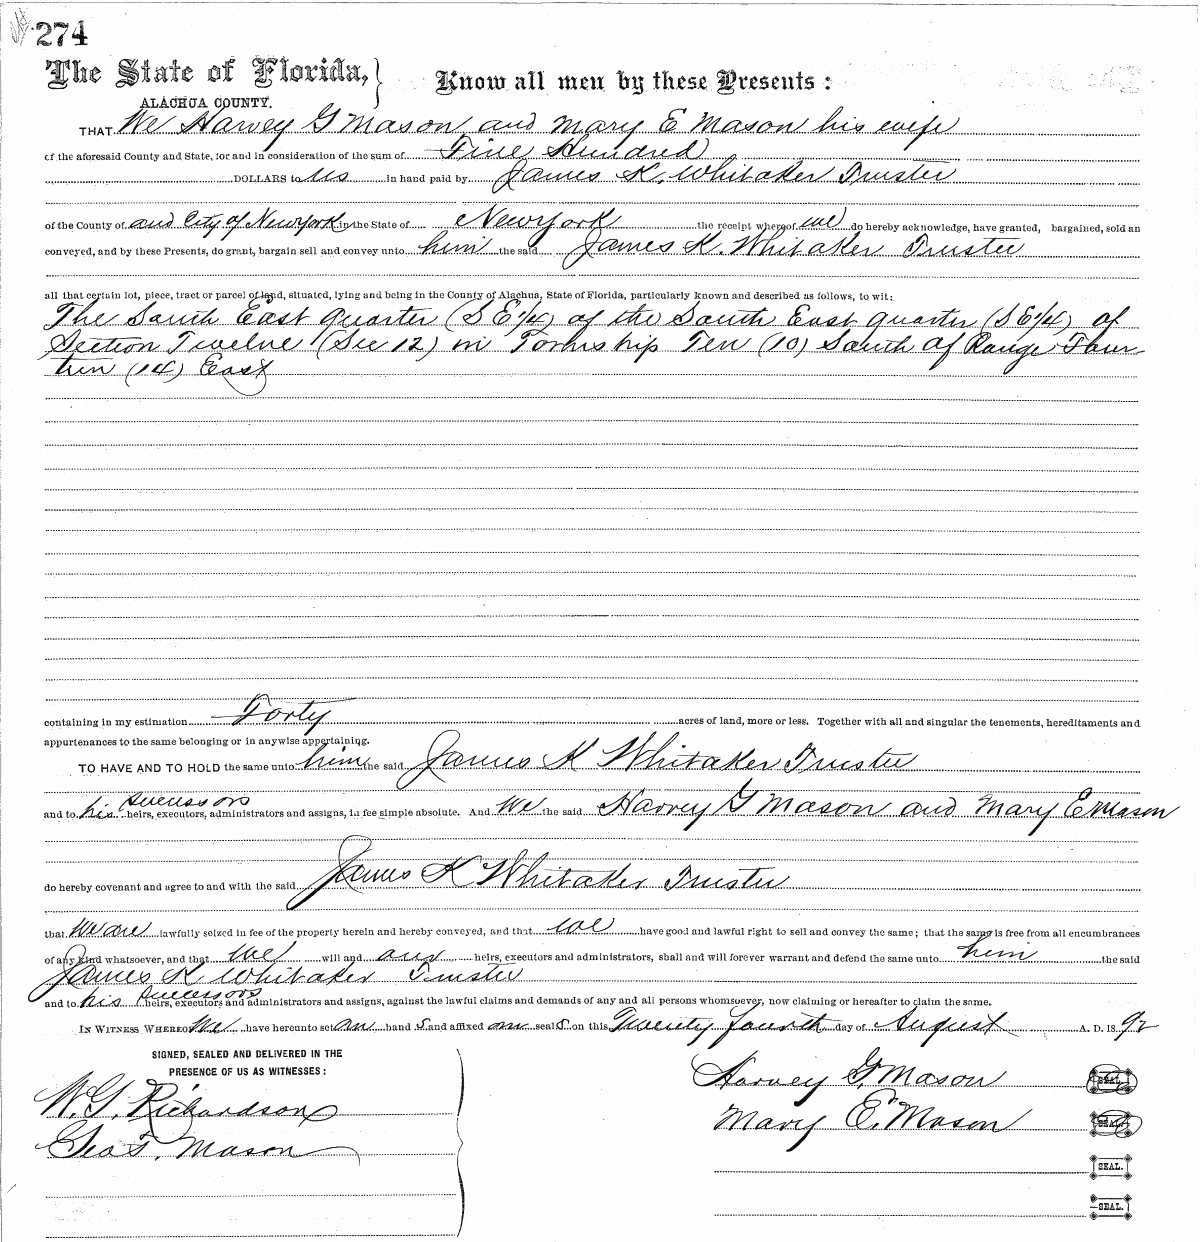 274
The State of Florida, Know all men by these Presents:
ALACHUA COUNTY.
THAT We Harvey G Mason and Mary E Mason his wife
of the aforesaid County and State, for and in consideration of the sum of Five Hundred
DOLLARS to us in hand paid by James K. Whitaker Trustee
of the County of and City of New York in the State of New York the receipt whereof we do hereby acknowledge, have granted, bargained, sold an
conveyed, and by these Presents, do grant, bargain sell and convey unto him the said James K. Whitaker Trustee
all that certain lot, piece, tract or parcel of land, situated, lying and being in the County of Alachua, State of Florida, particularly known and described as follows, to wit:
The South East quarter (S E 1/4) of the South East quarter (S E 1/4) of
Section Twelve (Sec 12) in Township Ten (10) South of Range Four-
teen (14) East
containing in my estimation Forty acres of land, more or less. Together with all and singular the tenements, hereditaments and
appurtenances to the same belonging or in anywise appertaining.
TO HAVE AND TO HOLD the same unto him the said James K Whitaker Trustee
successors
and to his heirs, executors, administrators and assigns, in fee simple absolute. And We the said Harvey G Mason and Mary E Mason
do hereby covenant and agree to and with the said James K Whitaker Trustee
that we are lawfully seized in fee of the property herein and hereby conveyed, and that we have good and lawful right to sell and convey the same; that the same is free from all encumbrances
of any kind whatsoever, and that we will and our heirs, executors and administrators, shall and will forever warrant and defend the same unto him the said
James K Whitaker Trustee
successors
and to his heirs, executors and administrators and assigns, against the lawful claims and demands of any and all persons whomsoever, now claiming or hereafter to claim the same.
IN WITNESS WHEREOF We have hereunto set our hand s and affixed our seal s on this Twenty fourth day of August A. D. 18 92
SIGNED, SEALED AND DELIVERED IN THE
PRESENCE OF US AS WITNESSES:
Harvey G. Mason SEAL.
W. G. Richardson
Mary E. Mason SEAL.
Geo T. Mason
SEAL.
SEAL.